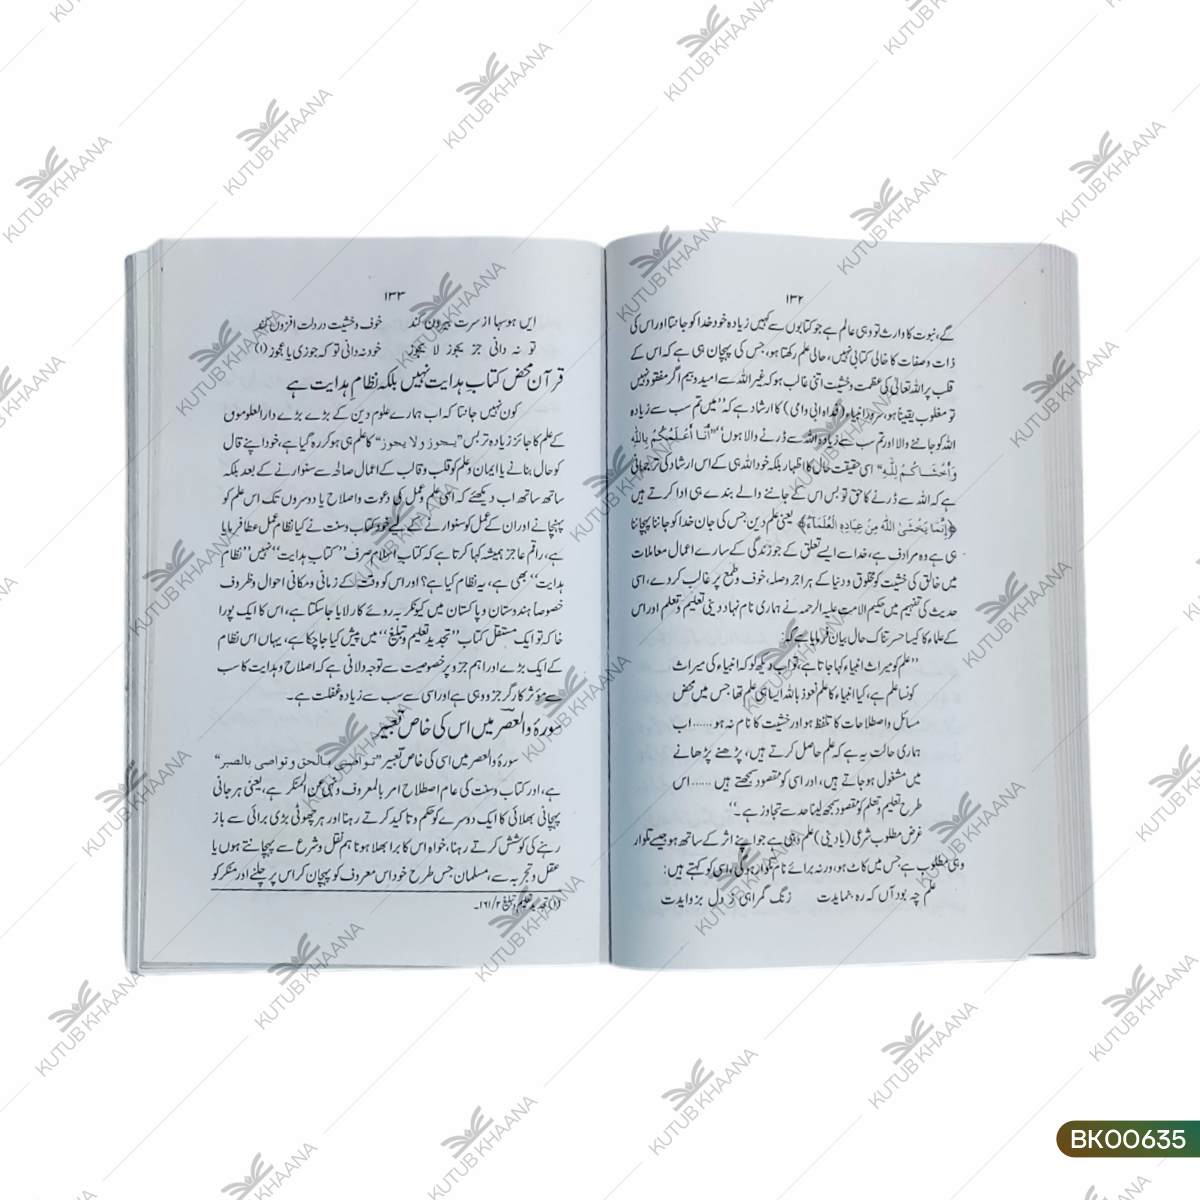 ۱۳۲
گے، نبوت کا وارث تو وہی عالم ہے جو کتابوں سے کہیں زیادہ خود خدا کو جانتا اور اس کی
ذات و صفات کا خالی کتابی نہیں، حالی علم رکھتا ہو، جس کی پہچان ہی ہے کہ اس کے
قلب پر اللہ تعالی کی عظمت و خشیت اتنی غالب ہو کہ غیر اللہ سے امید و بیم اگر مفقود نہیں
تو مغلوب یقیناً ہو، سرور انبیاء (فداہ ابی وامی) کا ارشاد ہے کہ ’’میں تم سب سے زیادہ
اللہ کو جاننے والا اور تم سب سے زیادہ اللہ سے ڈرنے والا ہوں‘‘ ’’أنا أعلمكم بالله
وأخشاكم لله‘‘ اسی حقیقت حال کا اظہار بلکہ خود اللہ ہی کے اس ارشاد کی ترجمانی
ہے کہ اللہ سے ڈرنے کا حق تو بس اس کے جاننے والے بندے ہی ادا کرتے ہیں
﴿إنما يخشى الله من عباده العلماء﴾ یعنی علم دین جس کی جان خدا کو جاننا پہچاننا
ہی ہے وہ مرادف ہے، خدا سے ایسے تعلق کے جو زندگی کے سارے اعمال معاملات
میں خالق کی خشیت کو مخلوق و دنیا کے ہر اجر و صلہ، خوف و طمع پر غالب کر دے، اسی
حدیث کی تفہیم میں حکیم الامت علیہ الرحمہ نے ہماری نام نہاد دینی تعلیم و تعلم اور اس
کے علماء کا کیسا حسرتناک حال بیان فرمایا ہے کہ:
’’علم کو میراث انبیاء کہا جاتا ہے، تو اب دیکھ لو کہ انبیاء کی میراث
کونسا علم ہے، کیا انبیاء کا علم نعوذ باللہ ایسا ہی علم تھا جس میں محض
مسائل و اصطلاحات کا تلفظ ہو اور خشیت کا نام نہ ہو …… اب
ہماری حالت یہ ہے کہ علم حاصل کرتے ہیں، پڑھنے پڑھانے
میں مشغول ہو جاتے ہیں، اور اسی کو مقصود سمجھتے ہیں …… اس
طرح تعلیم و تعلم کو مقصود سمجھ لینا حد سے تجاوز ہے۔‘‘
غرض مطلوب شرعی (یا دینی) علم وہی ہے جو اپنے اثر کے ساتھ ہو جیسے تلوار
وہی مطلوب ہے جس میں کاٹ ہو، ورنہ برائے نام تلوار ہوگی، اسی کو کہتے ہیں:
علم چہ بود آں کہ رہ بنمایدت زنگ گمراہی ز دل بزدایدت
۱۳۳
ایں ہوسہا از سرت بیرون کند خوف و خشیت در دلت افزون کند
تو نہ دانی جز یجوز لا یجوز خود نہ دانی تو کہ جوزی یا عجوز (۱)
قرآن محض کتاب ہدایت نہیں بلکہ نظامِ ہدایت ہے
کون نہیں جانتا کہ اب ہمارے علوم دین کے بڑے بڑے دارالعلوموں
کے علم کا جائز زیادہ تر بس ’’يجوز ولا يجوز‘‘ کا علم ہی ہو کر رہ گیا ہے، خود اپنے قال
کو حال بنانے یا ایمان و علم کو قلب و قالب کے اعمال صالحہ سے سنوارنے کے بعد بلکہ
ساتھ ساتھ اب دیکھئے کہ اسی علم و عمل کی دعوت و اصلاح یا دوسروں تک اس علم کو
پہنچانے اور ان کے عمل کو سنوارنے کے لیے خود کتاب و سنت نے کیا نظام عمل عطا فرمایا
ہے، راقم عاجز ہمیشہ کہا کرتا ہے کہ کتاب اسلام صرف ’’کتاب ہدایت‘‘ نہیں ’’نظامِ
ہدایت‘‘ بھی ہے، یہ نظام کیا ہے؟ اور اس کو وقت کے زمانی و مکانی احوال و ظروف
خصوصاً ہندوستان و پاکستان میں کیونکر بہ روئے کار لایا جا سکتا ہے، اس کا ایک پورا
خاکہ تو ایک مستقل کتاب ’’تجدید تعلیم و تبلیغ‘‘ میں پیش کیا جا چکا ہے، یہاں اس نظام
کے ایک بڑے اور اہم جزو پر خصوصیت سے توجہ دلانی ہے کہ اصلاح و ہدایت کا سب
سے مؤثر کارگر جزو وہی ہے اور اسی سے سب سے زیادہ غفلت ہے۔
سورۂ والعصر میں اس کی خاص تعبیر
سورۂ والعصر میں اسی کی خاص تعبیر ’’تواصي بالحق و تواصي بالصبر‘‘
ہے، اور کتاب و سنت کی عام اصطلاح امر بالمعروف و نہی عن المنکر ہے، یعنی ہر جانی
پہچانی بھلائی کا ایک دوسرے کو حکم و تاکید کرتے رہنا اور ہر چھوٹی بڑی برائی سے باز
رہنے کی کوشش کرتے رہنا، خواہ اس کا برا بھلا ہونا ہم نقل و شرع سے پہچانتے ہوں یا
عقل و تجربہ سے، مسلمان جس طرح خود اس معروف کو پہچان کر اس پر چلنے اور منکر کو
(۱) تجدید تعلیم و تبلیغ ۱۶۱/۲۔
BK00635
KUTUB KHAANA